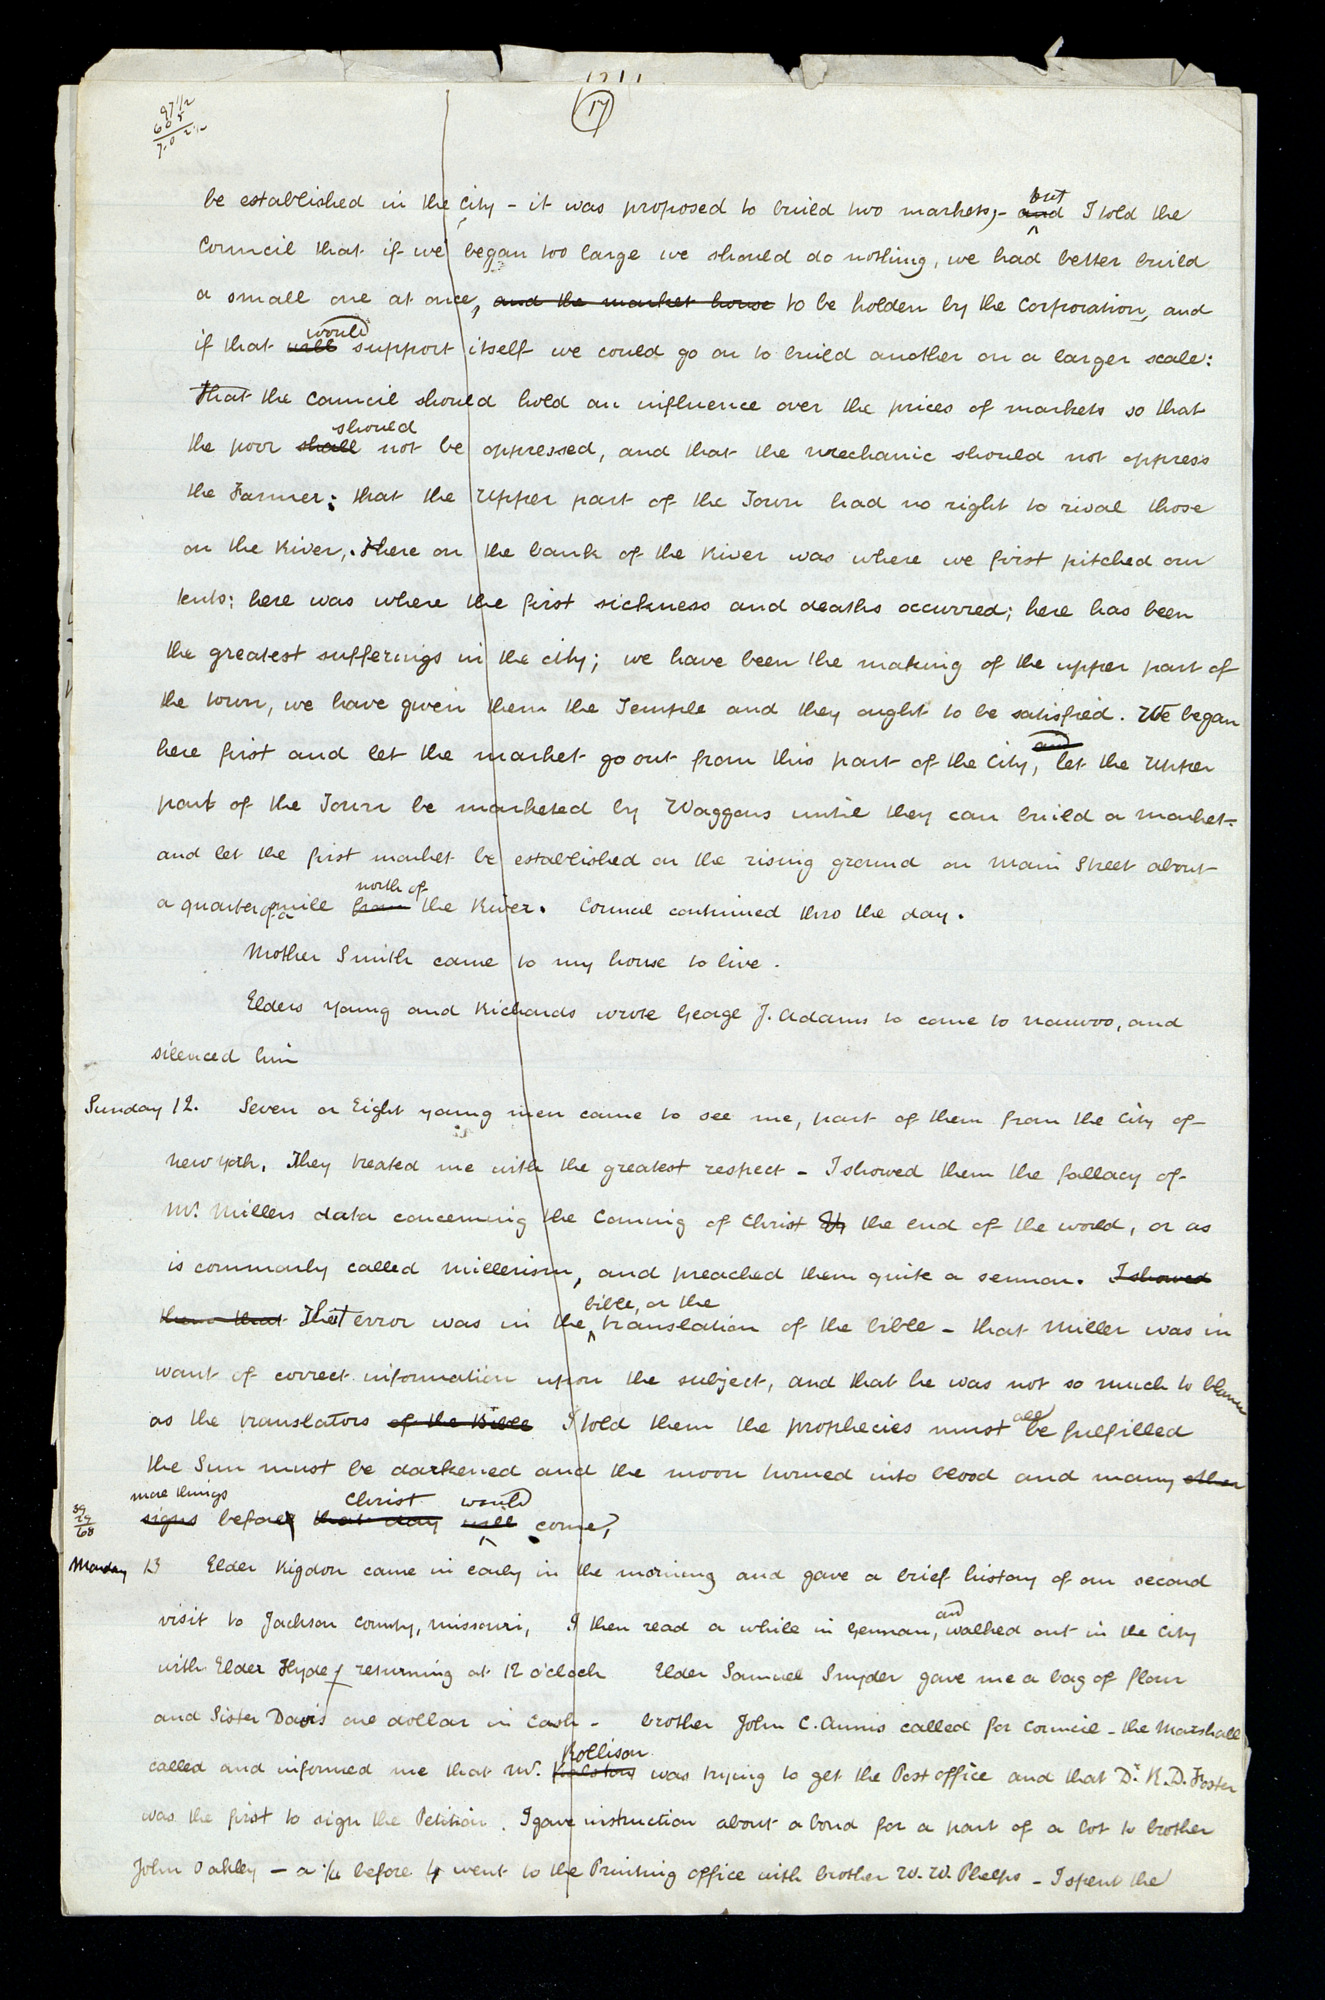 17
97 1/2
605
7.02 1/2
be established in the city - it was proposed to build two markets;- and but I told the
Council that if we began too large we should do nothing, we had better build
a small one at once, and the market house to be holden by the Corporation, and
if that will would support itself we could go on to build another on a larger scale:
That the Council should hold an influence over the prices of markets so that
the poor shall should not be oppressed, and that the mechanic should not oppress
the Farmer; that the Upper part of the Town had no right to rival those
on the River,. Here on the bank of the River was where we first pitched our
tents; here was where the first sickness and deaths occurred; here has been
the greatest sufferings in the city; we have been the making of the upper part of
the town, we have given them the Temple and they ought to be satisfied. We began
here first and let the market go out from this part of the City, and let the Upper
part of the Town be marketed by Waggons until they can build a market-
and let the first market be established on the rising ground on Main Street about
a quarter of a mile from north of the River. Council continued thro the day.
Mother Smith came to my house to live.
Elders Young and Richards wrote George J. Adams to come to Nauvoo, and
silenced him
Sunday 12. Seven or Eight young men came to see me, part of them from the City of
New York. They treated me with the greatest respect - I showed them the fallacy of
Mr. Millers data concerning the Coming of Christ & the end of the world, or as
is commonly called Millerism, and preached them quite a sermon. I showed
them that That error was in the bible, or the translation of the bible - that Miller was in
want of correct information upon the subject, and that he was not so much to blame
as the translators of the Bible I told them the prophecies must all be fulfilled
the Sun must be darkened and the moon turned into blood and many other
more things
signs before that day Christ will would come,
39
29
68
Monday 13 Elder Rigdon came in early in the morning and gave a brief history of our second
visit to Jackson County, Missouri, I then read a while in German, and walked out in the City
with Elder Hyde, returning at 12 o'clock Elder Samuel Snyder gave me a bag of flour
and Sister Davis one dollar in Cash - brother John C. Annis called for Council - the Marshall
called and informed me that Mr. Ralston Rollison was trying to get the Post office and that Dr. R. D. Foster
was the first to sign the Petition. I gave instruction about a bond for a part of a lot to brother
John Oakley - a 1/4 before 4 went to the Printing office with brother W. W. Phelps - I spent the